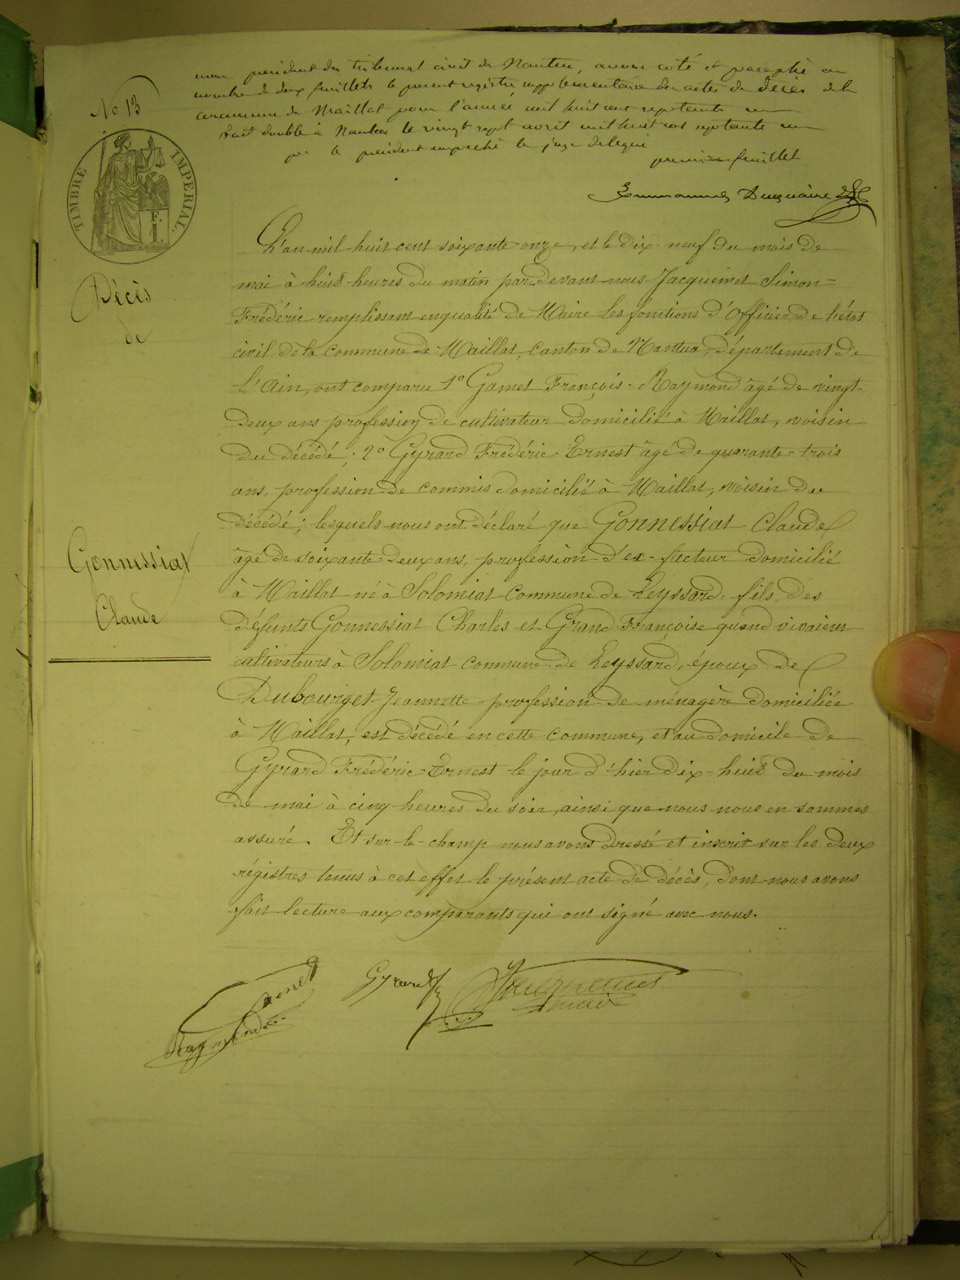 président du tribunal civil de Nantua, avons coté et paraphé au
nombre de deux feuillets le présent registre supplémentaire des actes de décès de la
commune de Maillat pour l'année mil huit cent septante un
fait double à Nantua le vingt sept avril mil huit cent septante un
pr le président empeché le juge délégué
premier feuillet
No 13
TIMBRE IMPERIAL.
L'an mil huit cent soixante-onze, et le dix-neuf du mois de
mai à huit heures du matin par devant nous Jacquinet Simon-
Frédéric remplissant en qualité de Maire les fonctions d'Officier de l'état
civil de la commune de Maillat, canton de Nantua, département de
l'Ain, ont comparu 1º Gamet François-Raymond âgé de vingt-
deux ans profession de cultivateur domicilié à Maillat, voisin
du décédé; 2º Gyrard Frédéric-Ernest âgé de quarante-trois
ans, profession de commis domicilié à Maillat, voisin du
décédé; lesquels nous ont déclaré que Gonnessiat Claude
âgé de soixante-deux ans, profession d'ex-facteur domicilié
à Maillat né à Solomiat commune de Leyssard, fils des
défunts Gonnessiat Charles et Grand Françoise quand vivaient
cultivateurs à Solomiat commune de Leyssard, époux de
Dubourget Jeannette profession de ménagère domiciliée
à Maillat, est décédé en cette commune, et au domicile de
Gyrard Frédéric-Ernest le jour d'hier dix-huit du mois
de mai à cinq heures du soir, ainsi que nous nous en sommes
assuré. Et sur-le-champ nous avons dressé et inscrit sur les deux
régistres tenus à cet effet le présent acte de décès, dont nous avons
fait lecture aux comparants qui ont signé avec nous.
Décès
de
Gonnessiat
Claude
Gamet
Raymond
Gyrard